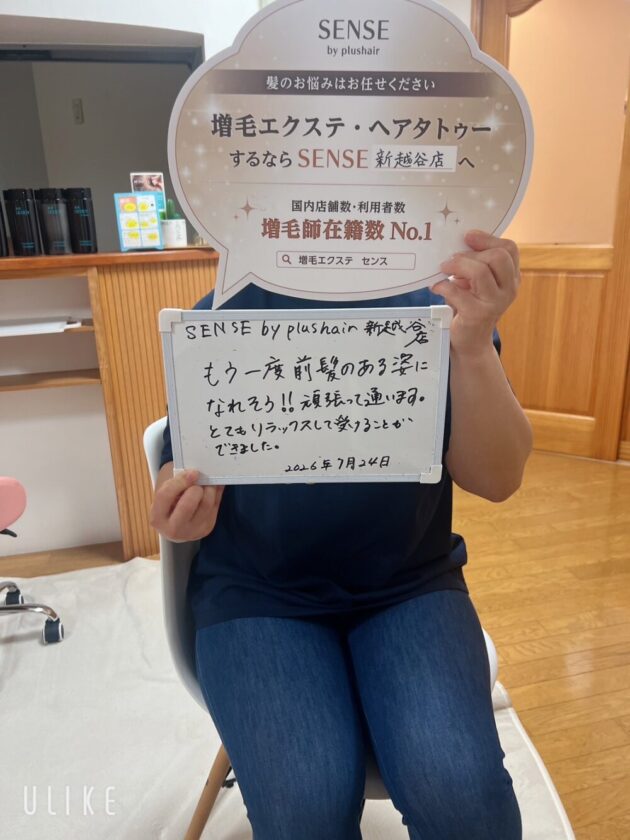 SENSE
by plushair
髪のお悩みはお任せください
増毛エクステ・ヘアタトゥー
するなら SENSE 新越谷店 へ
国内店舗数・利用者数
増毛師在籍数 No.1
増毛エクステ センス
SENSE by plushair 新越谷店
もう一度前髪のある姿に
なれそう!! 頑張って通います。
とてもリラックスして受けることが
できました。
2026年7月24日
ULIKE